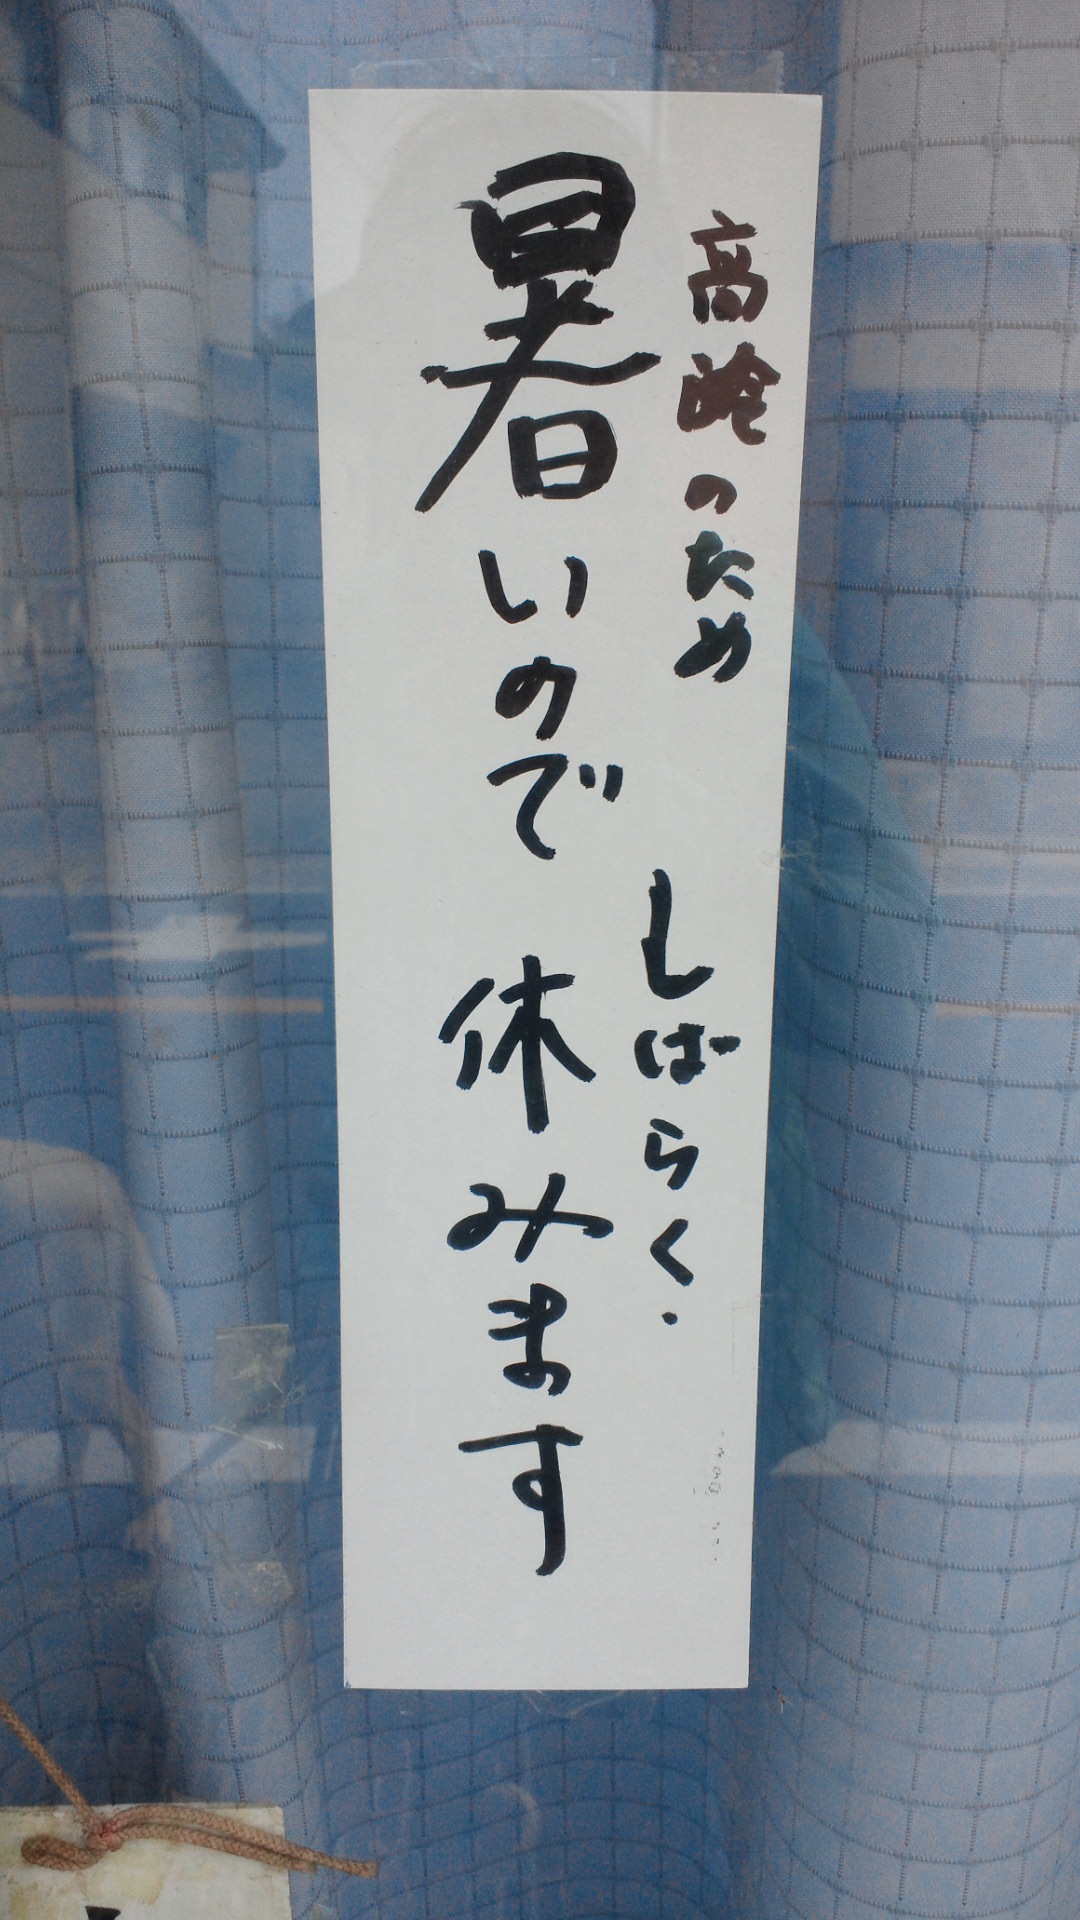 高齢のため
しばらく.
暑いので 休みます